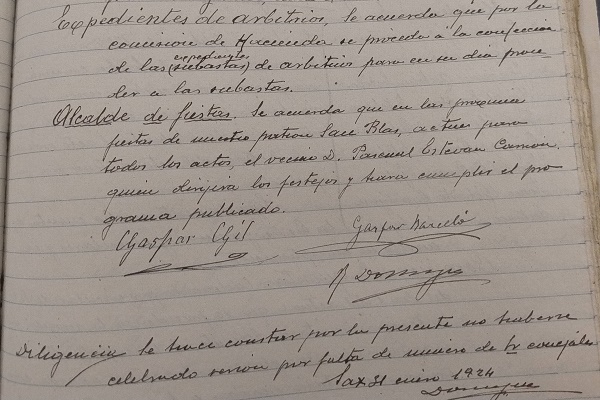 Expedientes de arbitrios, Se acuerda que por la
comision de Hacienda se proceda a la confeccion
de las (expedientes subastas) de arbitrios para en su dia proce
der a las subastas.
Alcalde de fiestas. Se acuerda que en las proximas
fiestas de nuestro patron San Blas, actue para
todos los actos, el vecino D. Pascual Estevan
quien dirijira los festejos y hara cumplir el pro
grama publicado.
Gaspar Gil
Gaspar Barceló
Diligencia Se hace constar por la presente no haberse
celebrado sesion por falta de numero de Sres concejales
Sax 31 enero 1924